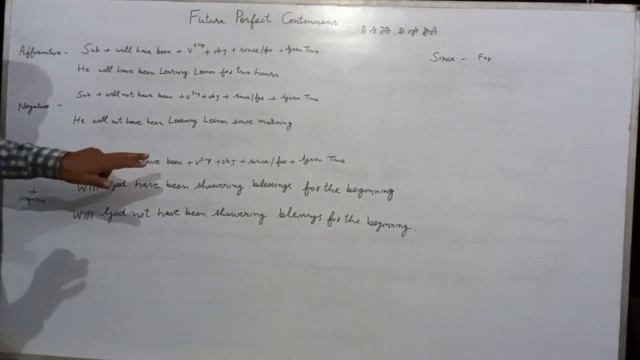 Future Perfect Continuous
Affirmative - Sub + will have been + V ing + obj + since/for + Given Time
Since - For
He will have been Learning Lesson for two hours
Negative - Sub + will not have been + V ing + obj + since/for + Given Time
He will not have been Learning Lesson since morning
have been + V ing + obj + since/for + Given Time
Will God have been showering blessings for the beginning
+
Negative
Will God not have been showering blessings for the beginning.